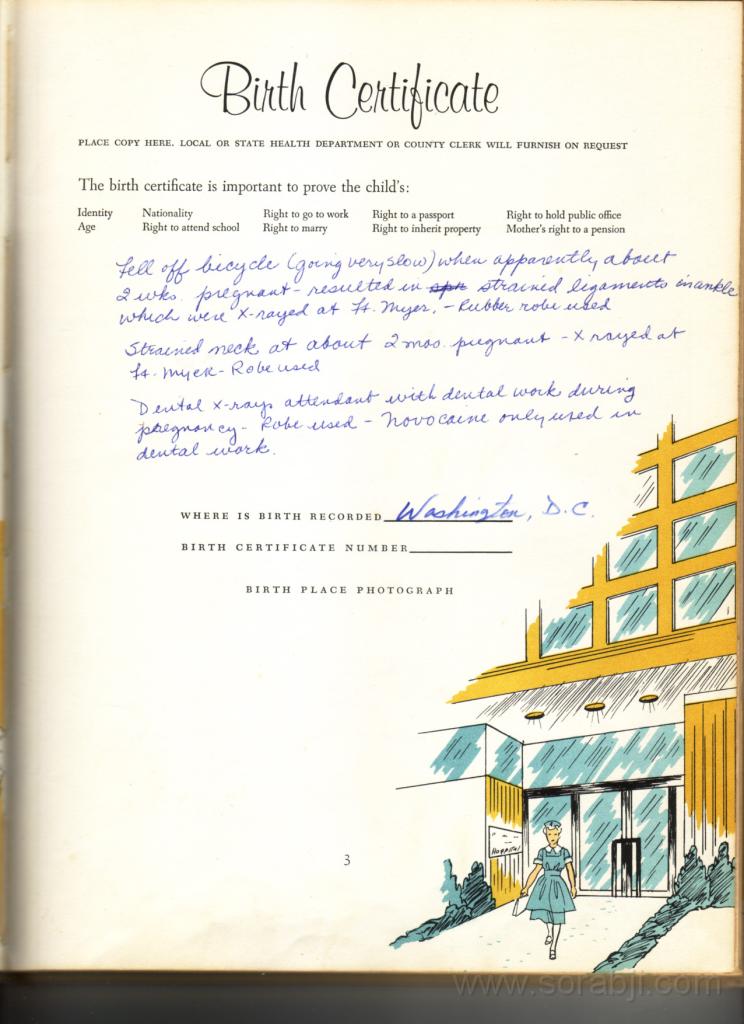 Birth Certificate
PLACE COPY HERE. LOCAL OR STATE HEALTH DEPARTMENT OR COUNTY CLERK WILL FURNISH ON REQUEST
The birth certificate is important to prove the child's:
Identity Nationality Right to go to work Right to a passport Right to hold public office
Age Right to attend school Right to marry Right to inherit property Mother's right to a pension
Fell off bicycle (going very slow) when apparently about
2 wks. pregnant - resulted in strained ligaments in ankle
which were X-rayed at Ft. Myer. - Rubber robe used
Strained neck at about 2 mos. pregnant - X rayed at
Ft. Myer - Robe used
Dental x-rays attendant with dental work during
pregnancy - Robe used - Novocaine only used in
dental work.
WHERE IS BIRTH RECORDED Washington, D.C.
BIRTH CERTIFICATE NUMBER
BIRTH PLACE PHOTOGRAPH
Hospital
3
www.sorabji.com